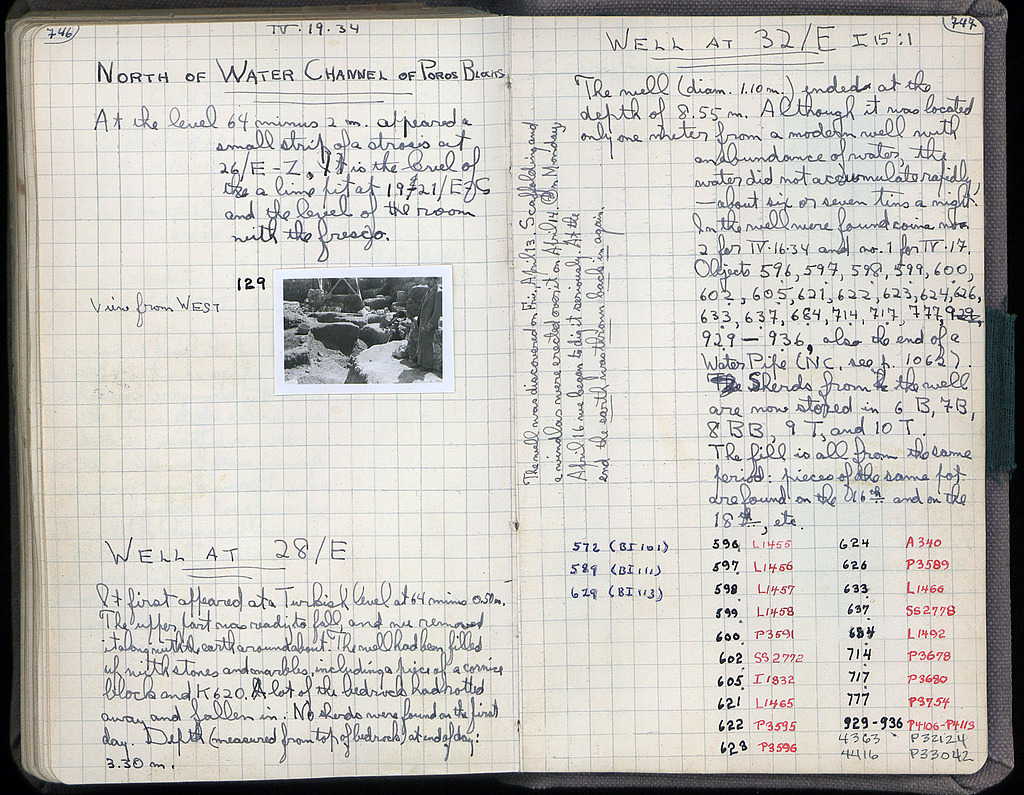 746
IV.19.34
NORTH OF WATER CHANNEL OF POROS BLOCKS
At the level 64 minus 2 m. appeared a
small strip of a strosis at
26/E-Z. It is the level of
the a lime pit at 19-21/E&G
and the level of the room
with the fresco.
129
View from WEST
WELL AT 28/E
It first appeared at a Turkish level at 64 minus 0.50m.
The upper part was ready to fall and we removed
it along with the earth around about. The well had been filled
up with stones and marbles, including a piece of a cornice
block and K 620. A lot of the bedrock had rotted
away and fallen in. No sherds were found on the first
day. Depth (measured from top of bedrock) at end of day:
3.30 m.
747
WELL AT 32/E I 15:1
The well (diam. 1.10 m.) ended at the
depth of 8.55 m. Although it was located
only one meter from a modern well with
an abundance of water, the
water did not accumulate rapidly,
—about six or seven tins a night.
In the well were found coins nos.
2 for IV.16.34 and no. 1 for IV.17.
Objects 596, 597, 598, 599, 600,
602, 605, 621, 622, 623, 624, 626,
633, 637, 684, 714, 717, 777, 929,
929 – 936, also the end of a
Water Pipe (NC. see p. 1062).
The Sherds from the well
are now stored in 6 B, 7B,
8 BB, 9 T, and 10 T.
The fill is all from the same
period: pieces of the same pot
are found on the 16th and on the
18th, etc.
The well was discovered on Fri., April 13. Scaffolding and
a windlas were erected over it on April 14. On Monday,
April 16 we began to dig it seriously. At the
end the earth was thrown back in again.
572 (BI 101)
589 (BI 111)
629 (BI 113)
596 L1455 624 A340
597 L1456 626 P3589
598 L1457 633 L1466
599 L1458 637 SS2778
600 P3591 684 L1492
602 SS2772 714 P3678
605 I1832 717 P3680
621 L1465 777 P3754
622 P3595 929-936 P4106-P4113
623 P3596 4363 P32124
4416 P33042